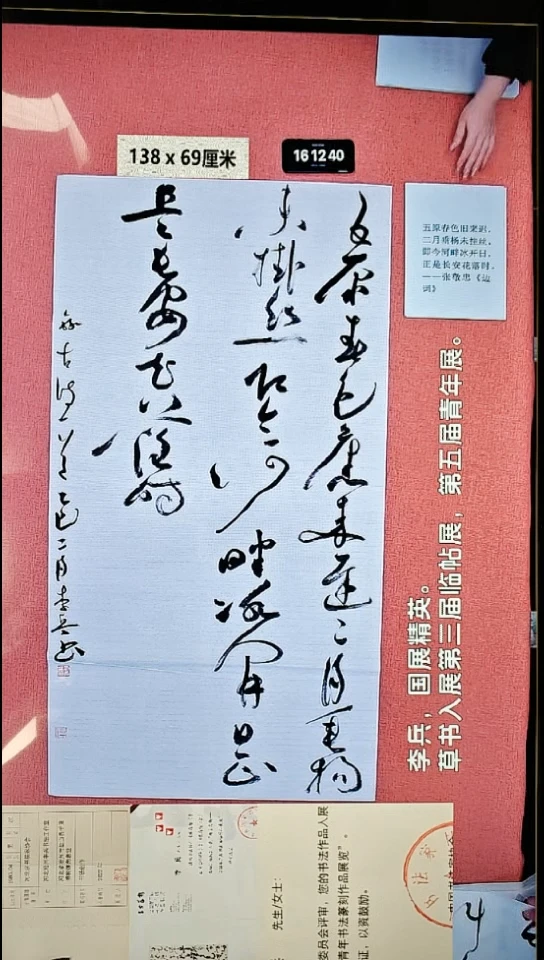 138 x 69厘米
16 12 40
五原春色舊来遲二月垂楊
未掛絲即今河畔冰開日正
是長安花落時
古詩一首乙巳二月李兵書
五原春色旧来迟，
二月垂杨未挂丝。
即今河畔冰开日，
正是长安花落时。
——张敬忠《边
词》
李兵，国展精英。
草书入展第三届临帖展，第五届青年展。
先生/女士：
委员会评审，您的书法作品入展
青年书法篆刻作品展览”。
证，以资鼓励。